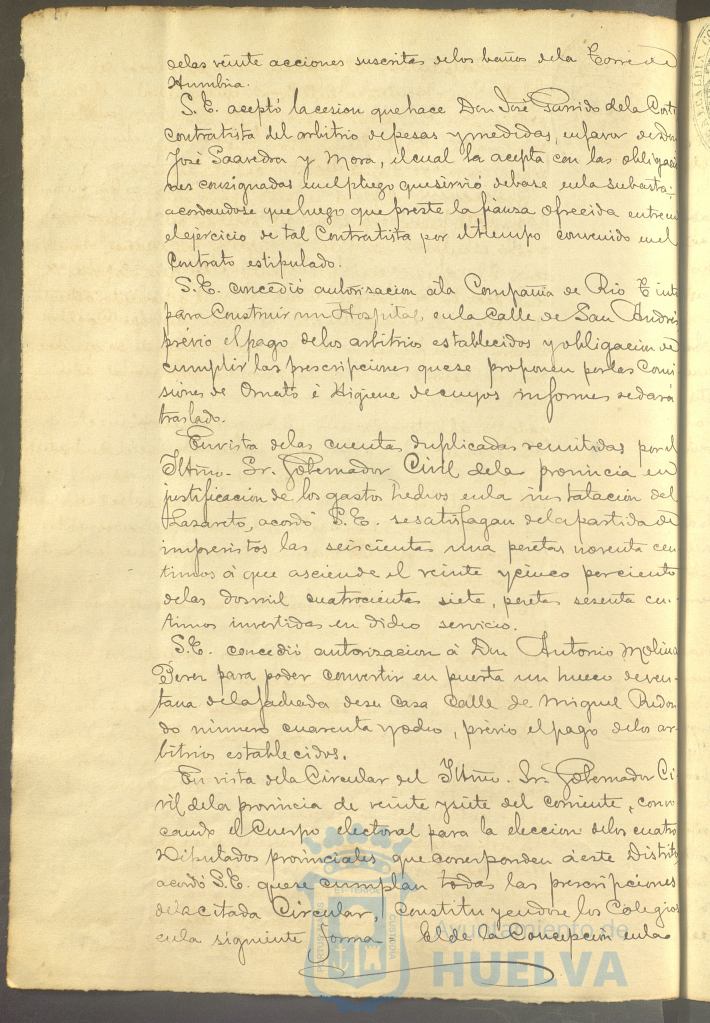 delas veinte acciones suscritas delos baños dela Torre de
Humbria.
S. E. aceptó la cesion que hace Don José Garrido dela Corte
contratista del arbitrio de pesas y medidas, enfavor de Dn
José Saavedra y Mora, el cual la acepta con las obligacio
nes consignadas enelpliego quesirvió debase enla subasta;
acordandose queluego que preste la fianza ofrecida entre en
elejercicio de tal Contratista por eltiempo convenido enel
contrato estipulado.
S.E. concedió autorizacion ála Compañia de Rio Tinto
para Construir un Hospital, enla Calle de San Andrés
prévio elpago delos arbitrios establecidos y obligacion de
cumplir las prescripciones quese proponen porlas Comi
siones de Ornato é Higiene decuyos informes sedará
traslado.
En vista delas cuentas duplicadas remitidas por el
Iltmo. Sr. Gobernador Civil dela provincia en
justificacion de los gastos hechos enla instalacion del
Lazareto, acordó S.E. sesatisfagan delapartida de
imprevistos las seiscientas una pesetas noventa cen
timos á que asciende el veinte ycinco porciento
delas dosmil cuatrocientas siete, pesetas sesenta cen-
timos invertidas en dicho servicio.
S.E. concedió autorizacion á Don Antonio Molina
Perez para poder convertir en puerta un hueco deven-
tana delafachada desu Casa Calle de Miguel Redon-
do número cuarenta yocho, prévio elpago delos ar-
bitrios establecidos.
En vista dela Circular del Iltmo. Sr. Gobernador Ci-
vil dela provincia de veinte ysiete del corriente, convo
cando el Cuerpo electoral para la eleccion delos cuatro
Diputados provinciales que corresponden á este Distrito
acordó S.E. quese cumplan todas las prescripciones
dela citada Circular, Constituyendose los Colegios
enla siguiente forma El de la Concepcion enla
Ayuntamiento de
HUELVA